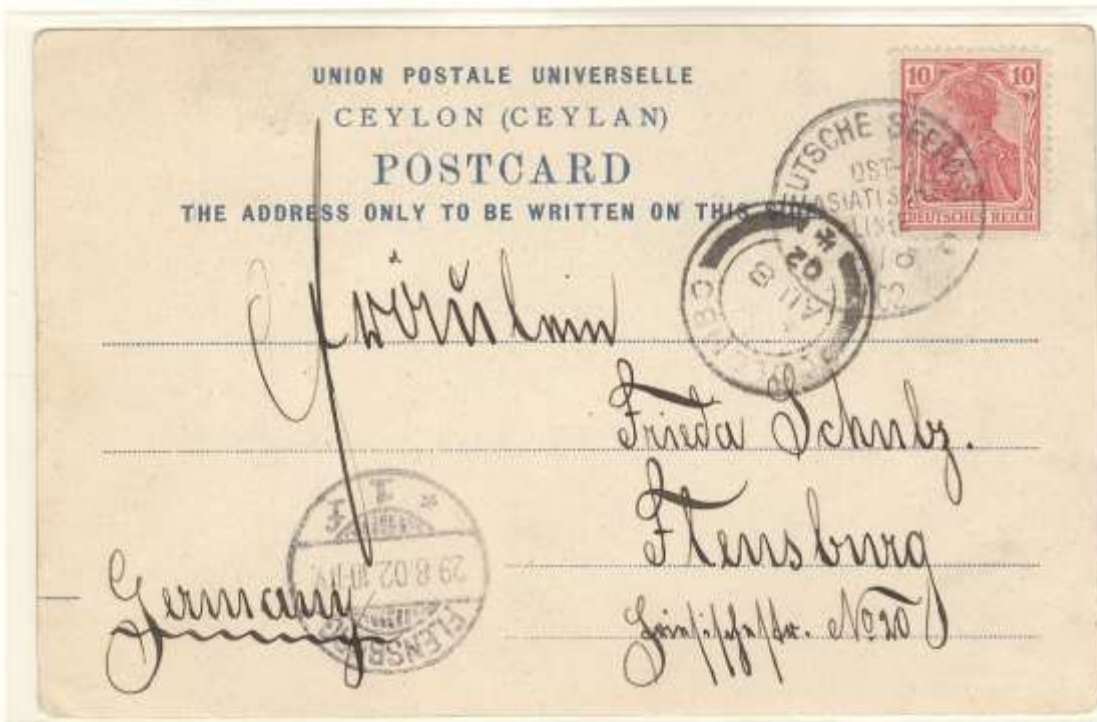 UNION POSTALE UNIVERSELLE
CEYLON (CEYLAN)
POSTCARD
THE ADDRESS ONLY TO BE WRITTEN ON THIS SIDE
10 10
DEUTSCHES REICH
DEUTSCHE SEEPOST
OST-
ASIATISCHE
LINIE
02
COLOMBO
AU 8
02
Fräulein
Frieda Schulz.
Flensburg
Friesischestr. No 20
Germany
FLENSBURG
29.8.02
1